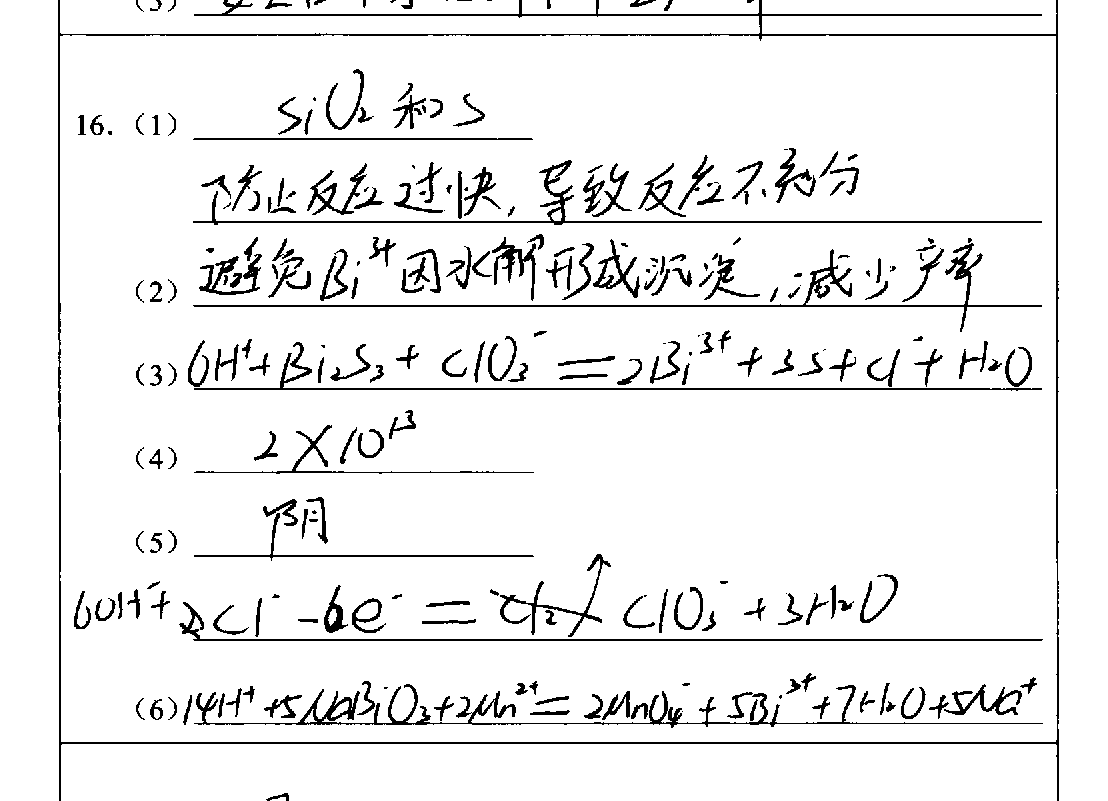 16.（1）SiO₂和S
防止反应过快，导致反应不充分
（2）避免Bi³⁺因水解形成沉淀，减少产率
（3）6H⁺+Bi₂S₃+ClO₃⁻=2Bi³⁺+3S+Cl⁻+H₂O
（4）2×10¹³
（5）阴
6OH⁻+Cl⁻-6e⁻=ClO₃⁻+3H₂O
（6）14H⁺+5NaBiO₃+2Mn²⁺=2MnO₄⁻+5Bi³⁺+7H₂O+5Na⁺